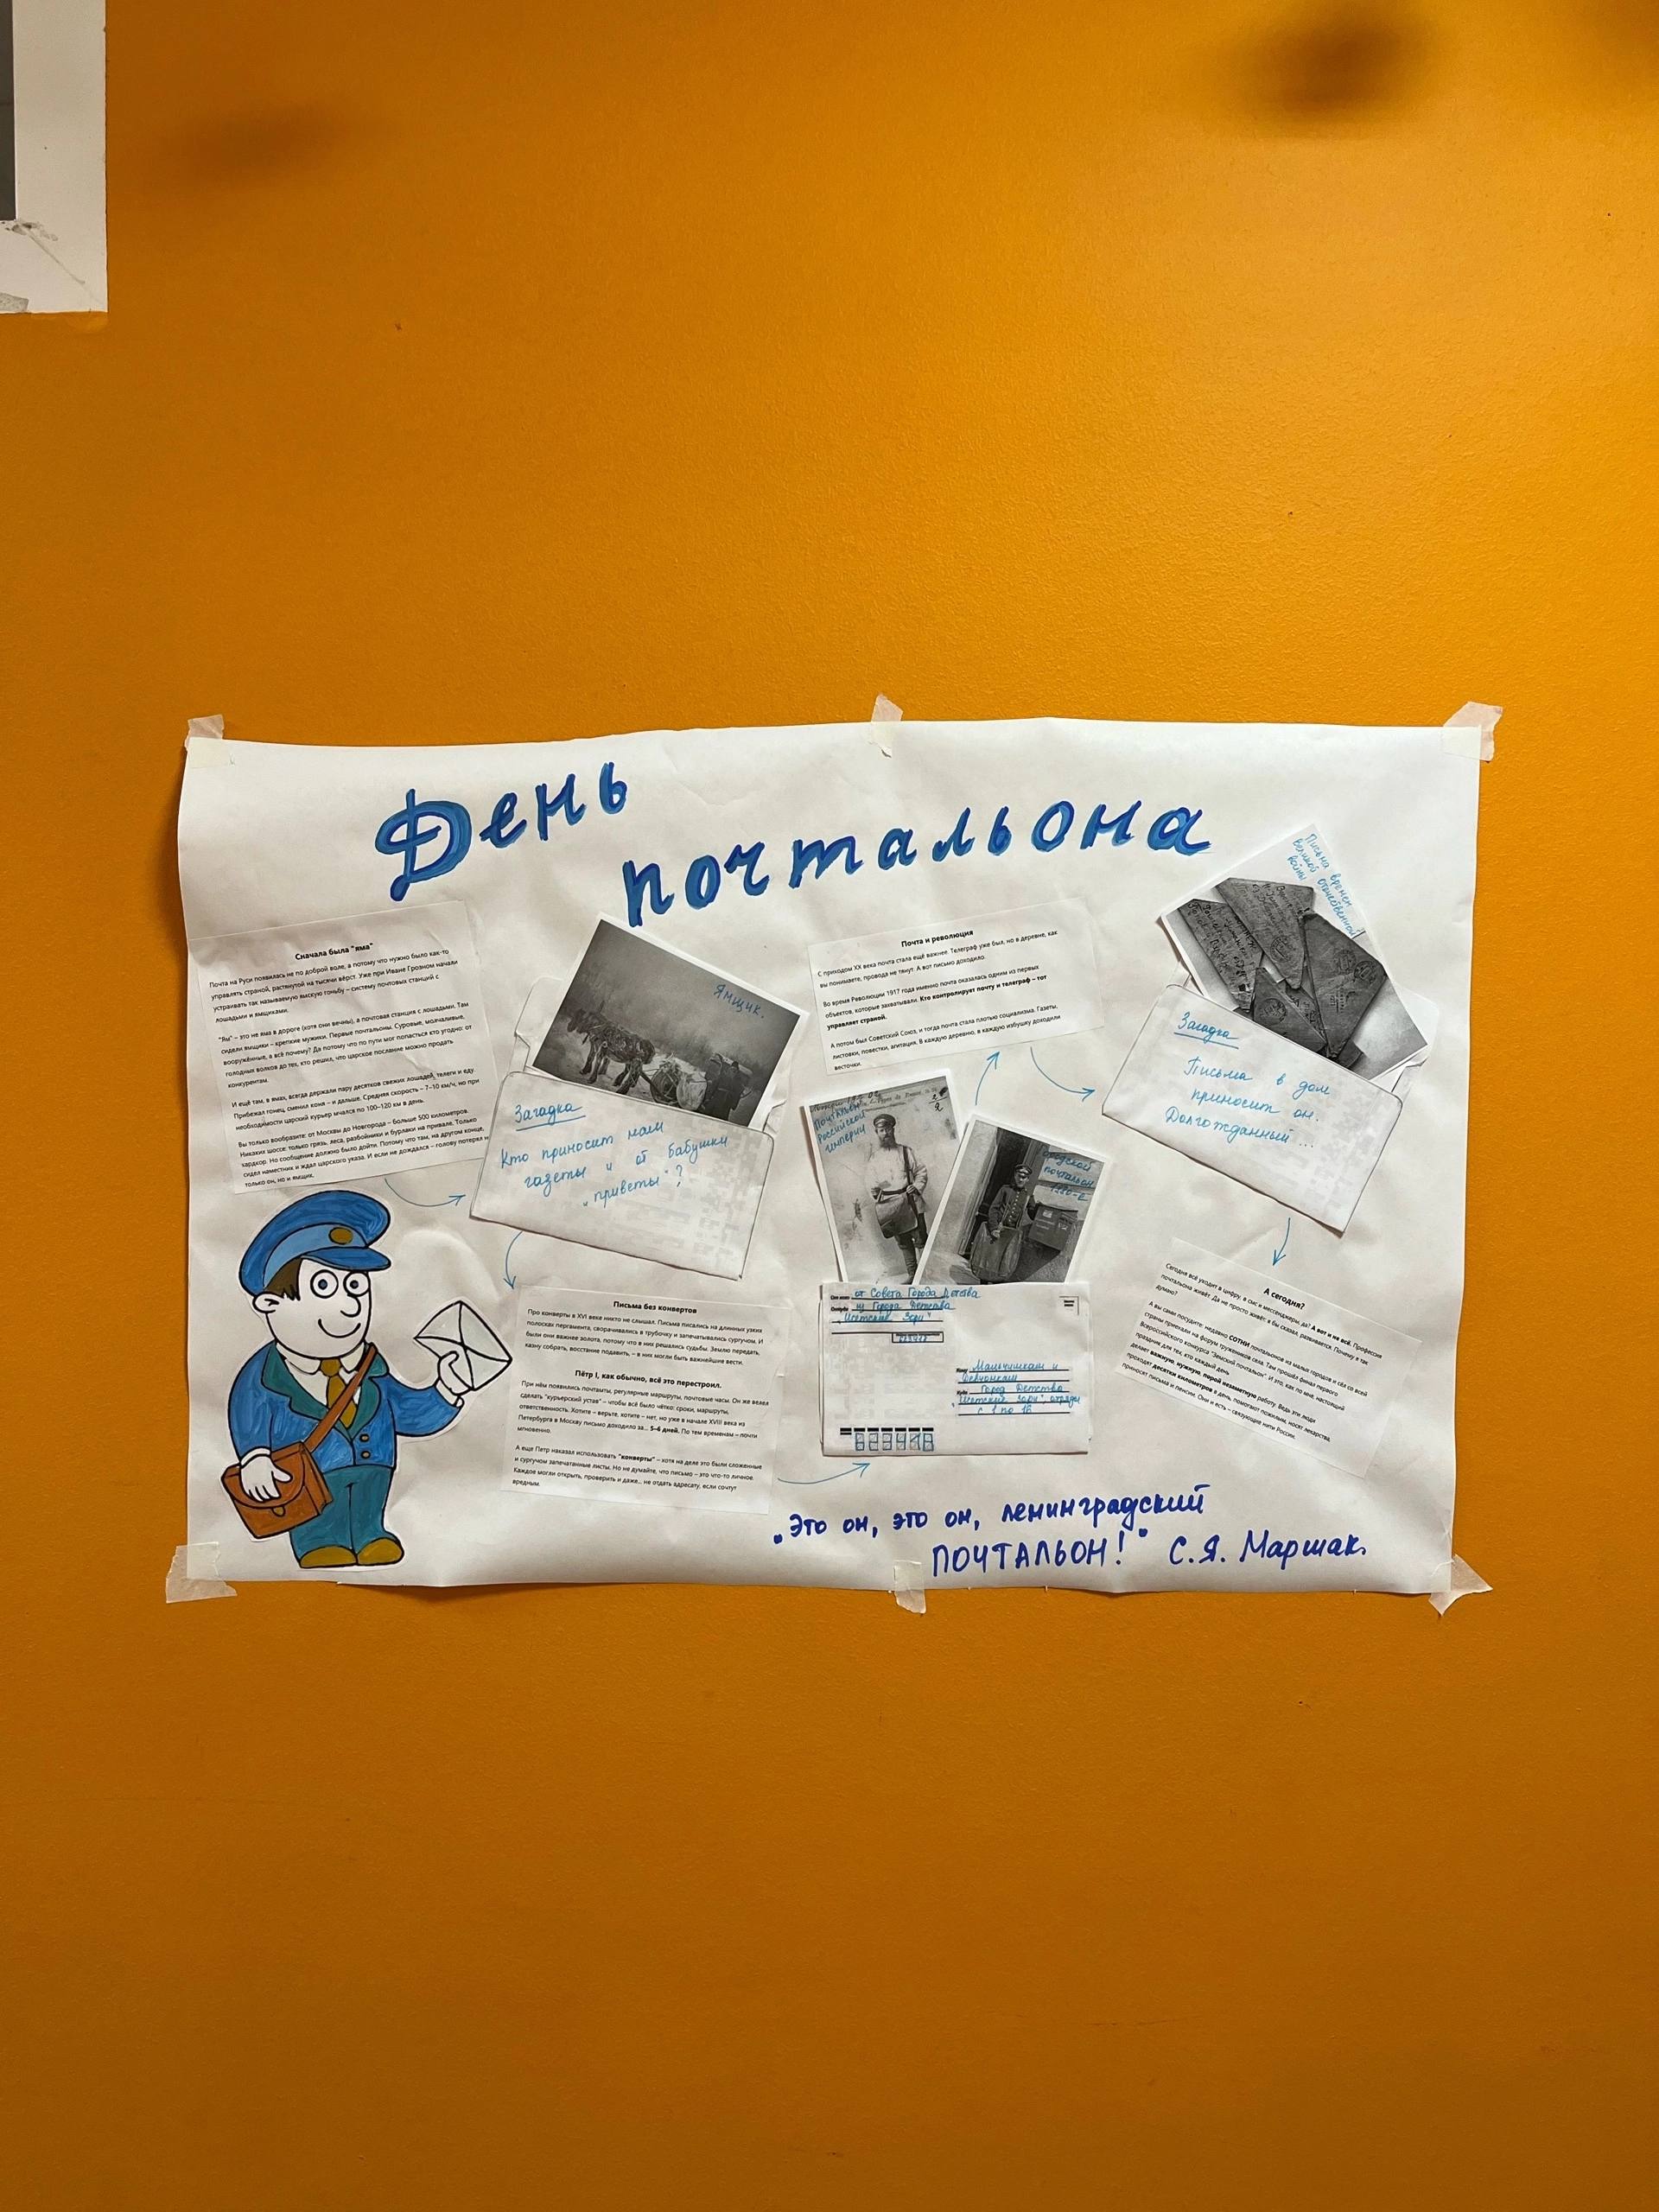 День
почтальона
Сначала была "яма"
Почта на Руси появилась не по доброй воле, а потому что нужно было как-то
управлять страной, растянутой на тысячи вёрст. Уже при Иване Грозном начали
устраивать так называемую ямскую гоньбу – систему почтовых станций с
лошадьми и ямщиками.
"Ям" – это не яма в дороге (хотя они вечны), а почтовая станция с лошадьми. Там
сидели ямщики – крепкие мужики. Первые почтальоны. Суровые, молчаливые,
вооружённые, а всё почему? Да потому что по пути мог попасться кто угодно: от
голодных волков до тех, кто решил, что царское послание можно продать
конкурентам.
И ещё там, в ямах, всегда держали пару десятков свежих лошадей, телеги и еду.
Прибежал гонец, сменил коня – и дальше. Средняя скорость – 7–10 км/ч, но при
необходимости царский курьер мчался по 100–120 км в день.
Вы только вообразите: от Москвы до Новгорода – больше 500 километров.
Никаких шоссе: только грязь, леса, разбойники и бурлаки на привале. Только
хардкор. Но сообщение должно было дойти. Потому что там, на другом конце,
сидел наместник и ждал царского указа. И если не дождался – голову потерял н
только он, но и ямщик.
Ямщик.
Загадка
Кто приносит нам
газеты и от бабушки
"приветы"?
Письма без конвертов
Про конверты в XVI веке никто не слышал. Письма писались на длинных узких
полосках пергамента, сворачивались в трубочку и запечатывались сургучом. И
были они важнее золота, потому что в них решались судьбы. Землю передать,
казну собрать, восстание подавить, – в них могли быть важнейшие вести.
Пётр I, как обычно, всё это перестроил.
При нём появились почтамты, регулярные маршруты, почтовые часы. Он же велел
сделать "курьерский устав" – чтобы всё было чётко: сроки, маршруты,
ответственность. Хотите – верьте, хотите – нет, но уже в начале XVIII века из
Петербурга в Москву письмо доходило за... 5–6 дней. По тем временам – почти
мгновенно.
А еще Петр наказал использовать "конверты" – хотя на деле это были сложенные
и сургучом запечатанные листы. Но не думайте, что письмо – это что-то личное.
Каждое могли открыть, проверить и даже... не отдать адресату, если сочтут
вредным.
Почтальон
Российской
империи
Городской
почтальон
От кого от Совета Города Детства
Откуда из Города Детства
"Исетские Зори"
Кому Мальчишкам и
девчонкам
Куда Город Детства
"Исетские Зори", отряды
с 1 по 16
623418
Почта и революция
С приходом XX века почта стала ещё важнее. Телеграф уже был, но в деревне, как
вы понимаете, провода не тянут. А вот письмо доходило.
Во время Революции 1917 года именно почта оказалась одним из первых
объектов, которые захватывали. Кто контролирует почту и телеграф – тот
управляет страной.
А потом был Советский Союз, и тогда почта стала плотью социализма. Газеты,
листовки, повестки, агитация. В каждую деревню, в каждую избушку доходили
весточки.
Письма времен
Великой отечественной
войны
Загадка
Письма в дом
приносит он.
Долгожданный...
А сегодня?
Сегодня всё уходит в цифру, в смс и мессенджеры, да? А вот и не всё. Профессия
почтальона живёт. Да не просто живёт: я бы сказал, развивается. Почему я так
думаю?
А вы сами посудите: недавно СОТНИ почтальонов из малых городов и сёл со всей
страны приехали на форум тружеников села. Там прошёл финал первого
Всероссийского конкурса "Земский почтальон". И это, как по мне, настоящий
праздник для тех, кто каждый день
делает важную, нужную, порой незаметную работу. Ведь эти люди
проходят десятки километров в день, помогают пожилым, носят лекарства,
приносят письма и пенсии. Они и есть – связующие нити России.
"Это он, это он, ленинградский
ПОЧТАЛЬОН!" С.Я. Маршак.